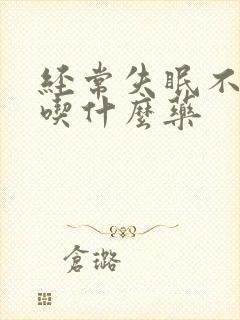 經常失眠不
喫什麼藥
倉璐